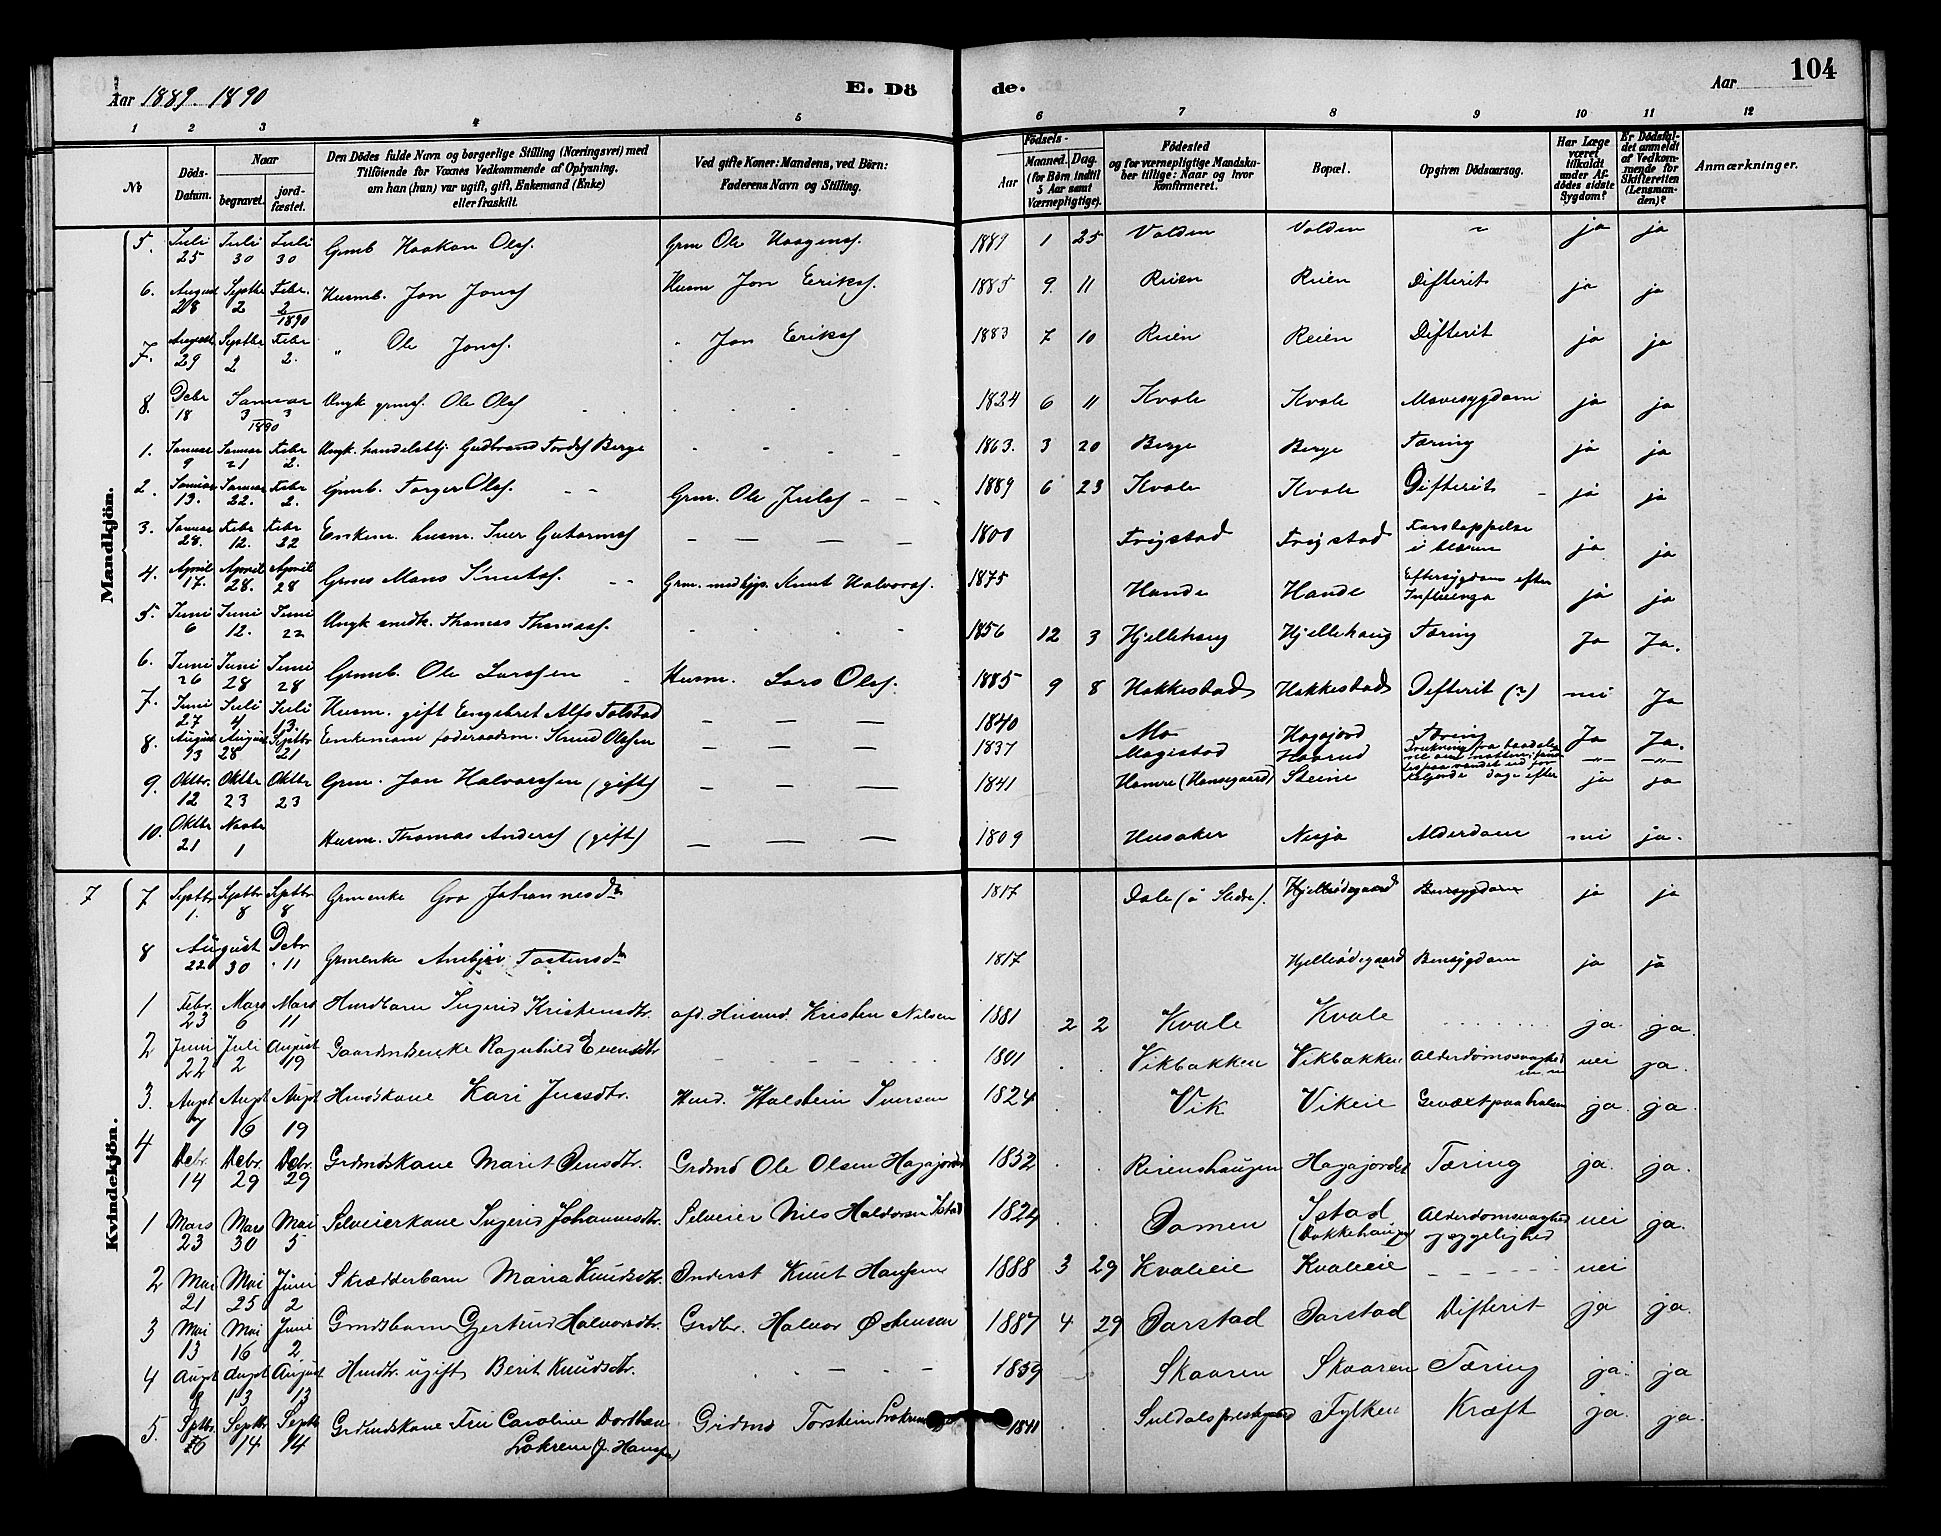 Aar 1889. 1890
E. Dö
de.
Aar
104
1 2 3 4 5 6 7 8 9 10 11 12
No
Döds-Datum.
Naar
begravet.
jord-fæstet.
Den Dödes fulde Navn og borgerlige Stilling (Næringsvei) med
Tilföiende for Voxnes Vedkommende af Oplysning,
om han (hun) var ugift, gift, Enkemand (Enke)
eller fraskilt.
Ved gifte Koner: Mandens, ved Börn:
Faderens Navn og Stilling.
Födsels-
Aar
Maaned. Dag.
(for Börn indtil
5 Aar samt
Værnepligtige).
Födested
og for værnepligtige Mandska-
ber tillige: Naar og hvor
konfirmeret.
Bopæl.
Opgiven Dödsaarsag.
Har Læge
været
tilkaldt
under Af-
dödes sidste
Sygdom?
Er Dödsfal-
det anmeldt
af Vedkom-
mende for
Skifteretten
(Lensman-
den)?
Anmærkninger.
Mandkjön.
5. Juli 25 Juli 30 Juli 30 Grmb Haakon Ols. Grm Ole Haagens. 1889 1 25 Volden Volden ja ja
6. August 28 Septbr 2 Febr. 2 1890 Husmb. Jon Jons Husm Jon Eriks. 1885 9. 11 Reien Reien Difterit ja ja
7. August 29 Septbr 2 Febr 2. " Ole Jons. " Jon Eriks 1883 7 10 Reien Reien Difterit ja ja
8. Debr 18 Januar 3 3 1890 Ungk grms. Ole Ols 1824 6 11 Kvale Kvale Mavesygdom ja ja
1. Januar 9 Januar 21 Febr 2. Ungk. handelsbtj. Gudbrand Tords Berge 1863. 3 20 Berge Berge Tæring ja ja
2. Januar 13. Januar 22. Febr 2. Grmb. Torger Ols. Grm. Ole Juls 1889 6 23 Kvale Kvale Difterit ja ja
3. Januar 28. Febr 12. Febr 22 Enkem. husm. Iver Gutorms 1800 Frigstad Frigstad Forstoppelse i ja ja
4. April 17. April 28. April 28 Mons Knuts. Grm. Knut Halvors. 1875 Hande Hande Eftersygdom efter Influenza ja ja
5. Juni 6 Juni 12. Juni 22 Ungk snedk. Thomas Thomass. 1856 12 3 Hjellehaug Hjellehaug Tæring Ja Ja.
6. Juni 26 Juni 28 Juni 28 Grmb. Ole Larssen Husm. Lars Ols. 1885 9 8 Hakkestad Hakkestad Difterit (?) nei Ja
7. Juni 27 Juli 4 Juli 13. Husm. gift Engebret Alfs Tolstad 1840 Mo Hagajord Tæring Ja Ja.
8. August 13 August 28 Septbr 21 Enkemand föderaadsm. Knud Olssen 1837 Magistad Haarud Drukning fra
9. Oktbr. 12 Oktbr 23 Oktbr 23 Grm. Jon Halvorssen (gift) 1841 Hamre Steine dage efter ja ja
10. Oktbr 21 Novbr 1 Husm. Thomas Anders (gift) 1809 Husaker Nesja Alderdom nei ja.
Kvindekjön.
7 7 Septbr 1. Septbr 8 Septbr 8 Grmenke Gro Johannesdr 1817 Dale (i Slidre). Hjelleödegaard Bensygdom ja ja
8 August 22 30 Debr. 11 Grmenke Anbjör Tostensdr 1817 Hjelleödegaard Bensygdom ja ja
1 Febr. 23 Mars 6 Mars 11 Husdbarn Ingerid Kristensdtr. afd. Husmd. Kristen Nilsen 1881 2 2 Kvale Kvale ja. ja.
2 Juni 22 Juli 2 August 19 Gaardmdsenke Ragnhild Evensdtr 1801 Vikbakken Vikbakken Alderdomssvaghed m. m nei ja.
3. Augst 7 Augst 16 Augst 19 Husdskone Kari Jensdtr. Husd. Halstein Iversen 1824 Vik Vikeie Gevæxt paa halsen ja. ja.
4 Debr. 14 Debr. 29 Debr. 29 Grdmdskone Marit Jensdtr. Grdmd Ole Olsen Hagajordet 1832 Reienshaugen Hagajordet Tæring ja. ja.
1 Mars 23 Mars 30 Mai 5 Selveierkone Ingerid Johannesdtr. Selveier Nils Haldorsen Istad 1824 Jomen Istad (Bakkehaugen) Alderdomssvaghed nei ja.
2 Mai 21 Mai 25 Juni 2 Skrædderbarn Maria Knudsdtr. Inderst Knut Hansen 1888 3 29 Kvaleeie Kvaleeie nei
3 Mai 13 Mai 16 Juni 2 Grmdsbarn Gjertrud Halvorsdtr. Grdbr. Halvor Östensen 1887 4 29 Jarstad Jarstad Difterit ja ja.
4 Augst 8 Augst 13 August 13 Husdtr. ugift Berit Knudsdtr. 1839 Skaaren Skaaren Tæring ja. ja
5. Septbr. Septbr 14 Septbr 14 Grdmdskone Fru Caroline Dorthea Lokrem (f. Hansen) Grdmd Torstein Lokrem 1841 Suldals prestegaard Fylken Kræft ja. ja.